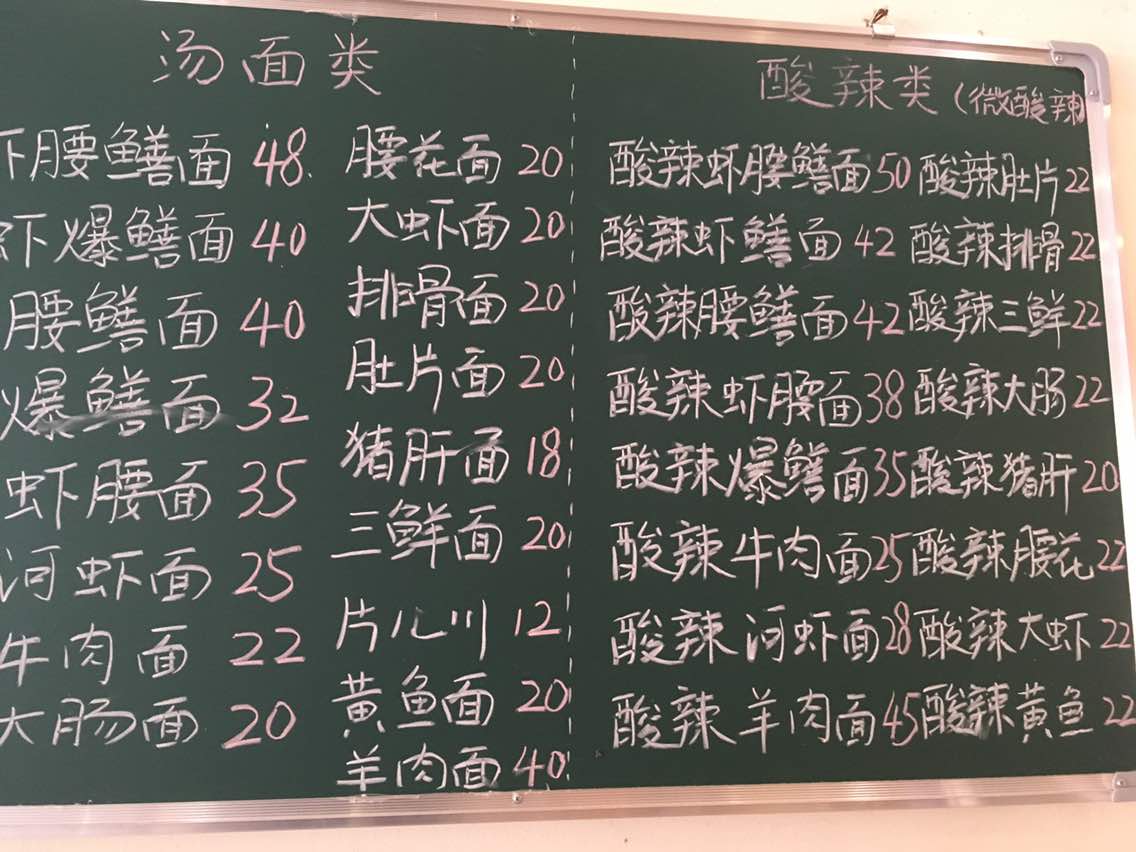 汤面类
下腰鳝面 48
虾爆鳝面 40
腰鳝面 40
爆鳝面 32
虾腰面 35
河虾面 25
牛肉面 22
大肠面 20
腰花面 20
大虾面 20
排骨面 20
肚片面 20
猪肝面 18
三鲜面 20
片儿川 12
黄鱼面 20
羊肉面 40
酸辣类(微酸辣)
酸辣虾腰鳝面 50
酸辣虾鳝面 42
酸辣腰鳝面 42
酸辣虾腰面 38
酸辣爆鳝面 35
酸辣牛肉面 25
酸辣河虾面 28
酸辣羊肉面 45
酸辣肚片 22
酸辣排骨 22
酸辣三鲜 22
酸辣大肠 22
酸辣猪肝 20
酸辣腰花 22
酸辣大虾 22
酸辣黄鱼 22